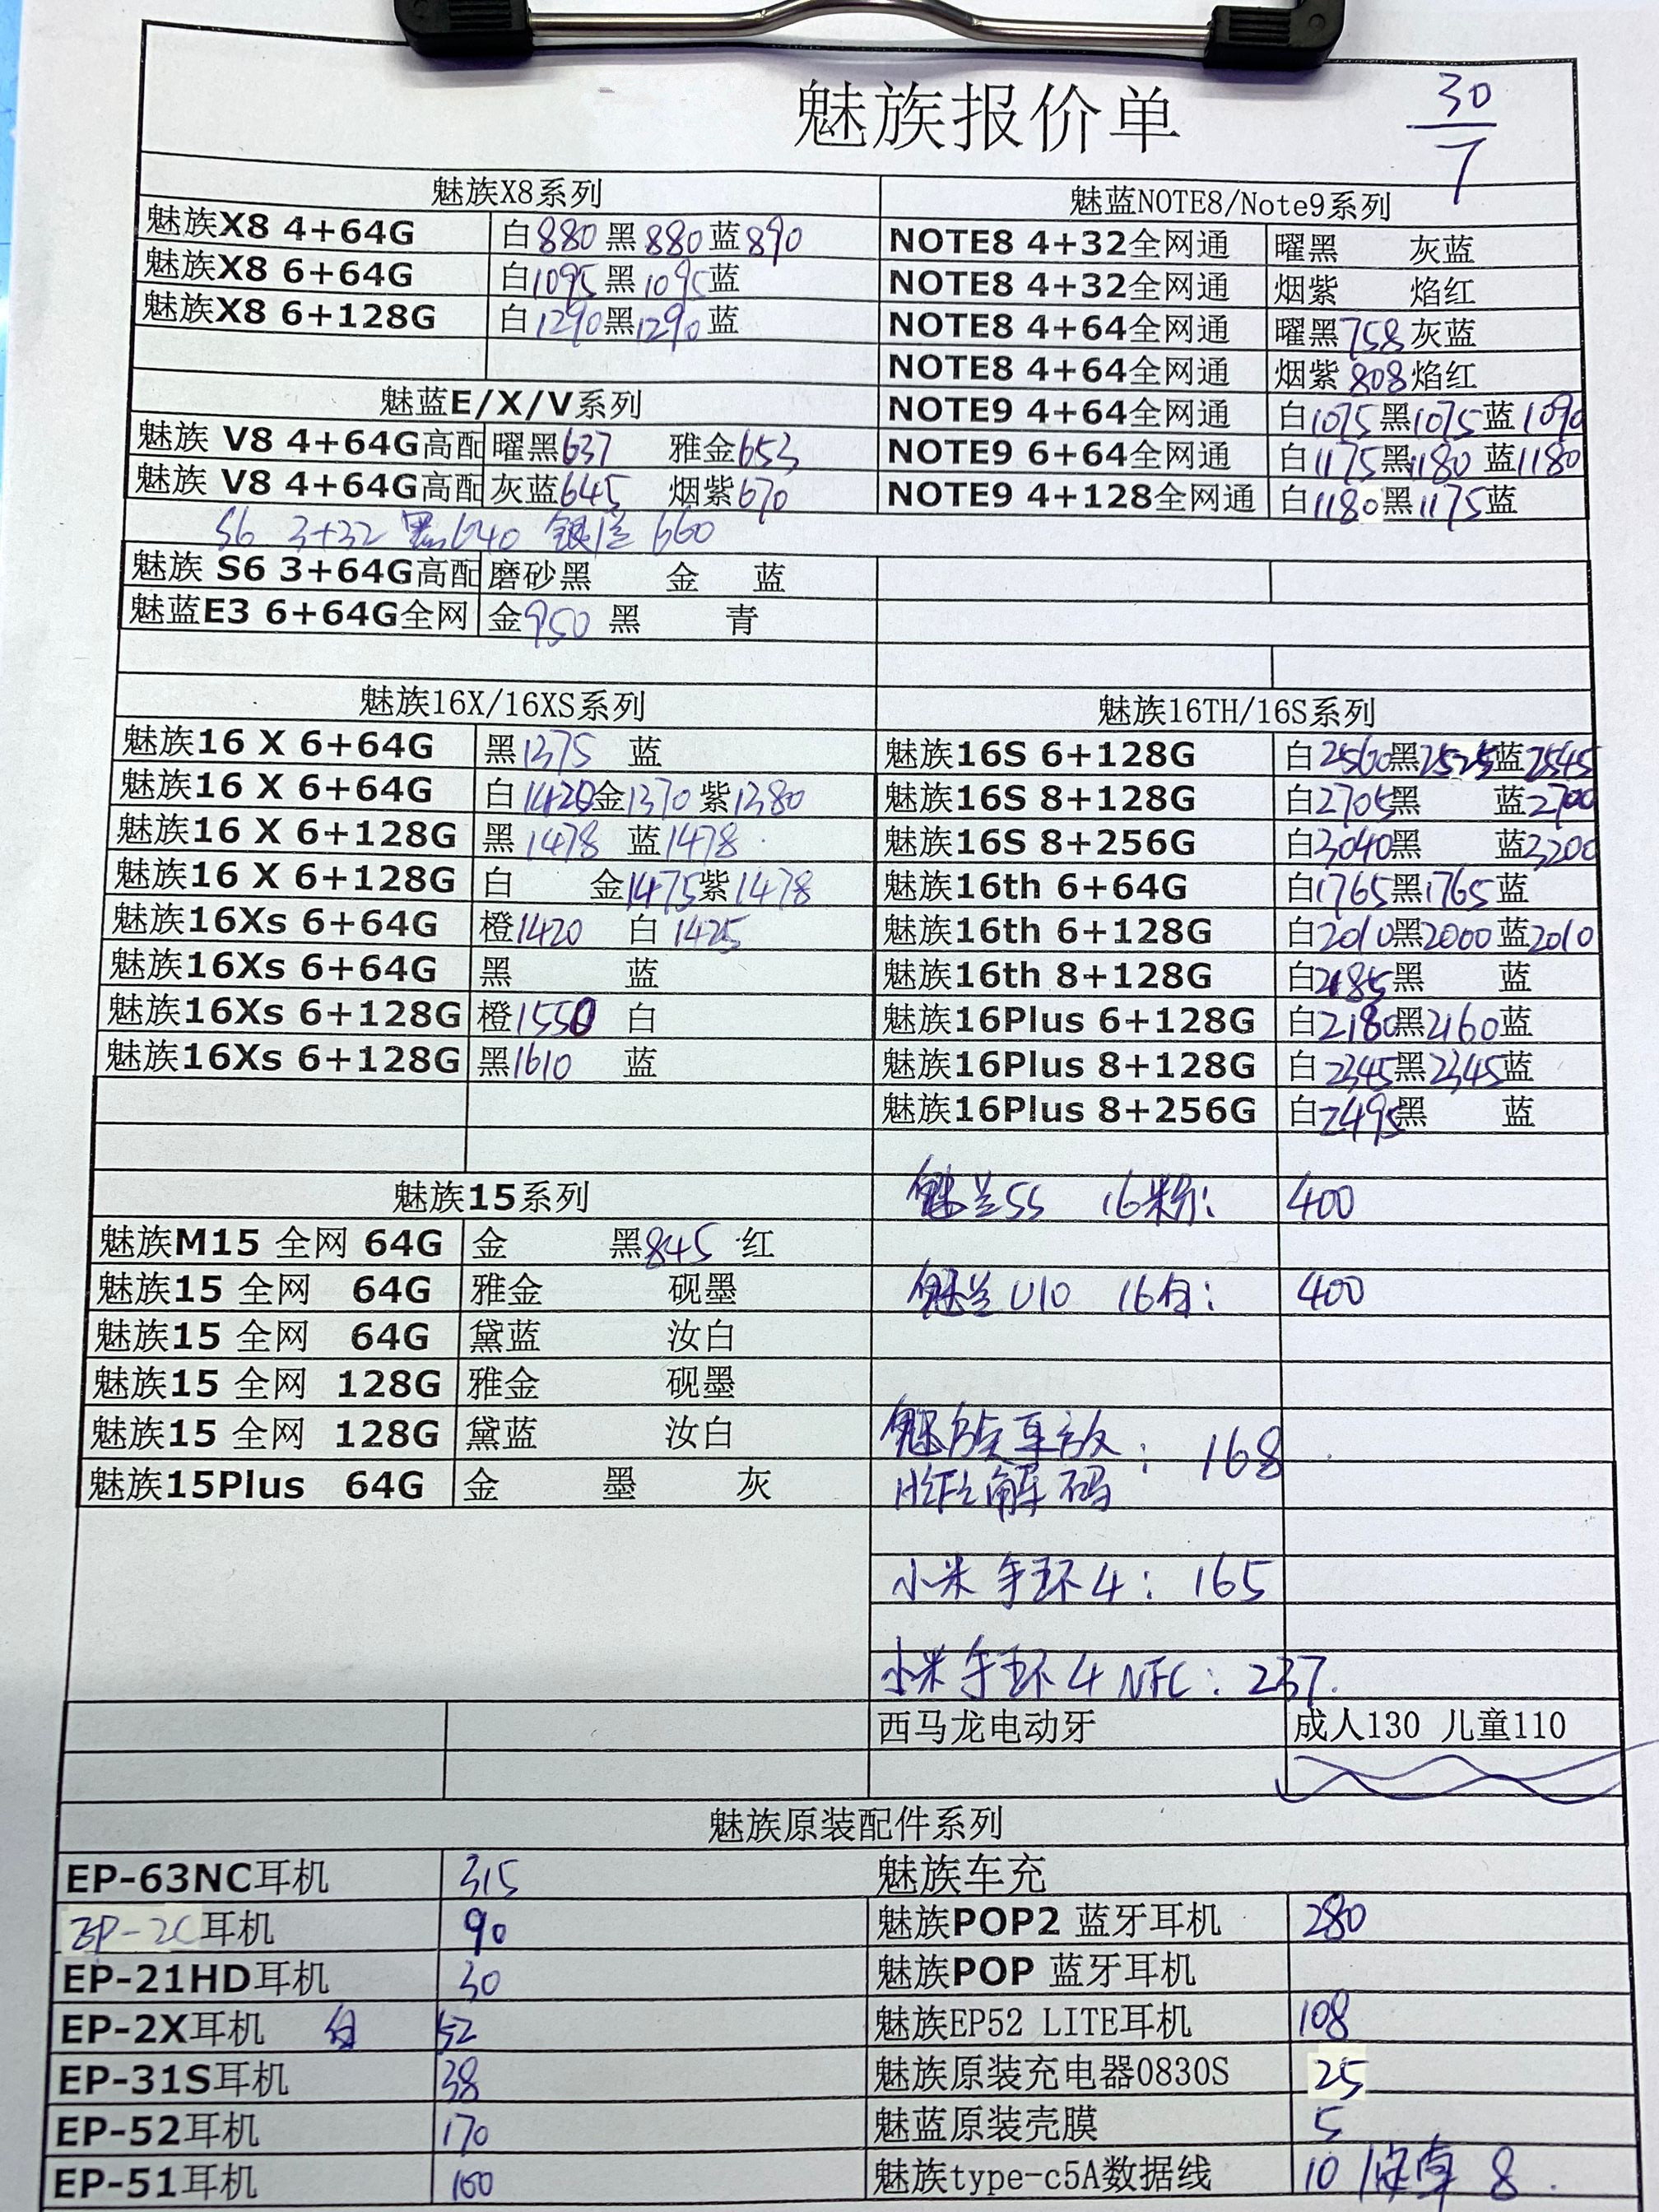 魅族报价单
30/7
魅族X8系列
魅族X8 4+64G 白880 黑880 蓝890
魅族X8 6+64G 白1095 黑1095 蓝
魅族X8 6+128G 白1290 黑1290 蓝
魅蓝E/X/V系列
魅族 V8 4+64G高配 曜黑637 雅金653
魅族 V8 4+64G高配 灰蓝645 烟紫670
S6 3+32 黑640 银蓝 660
魅族 S6 3+64G高配 磨砂黑 金 蓝
魅蓝E3 6+64G全网 金950 黑 青
魅蓝NOTE8/Note9系列
NOTE8 4+32全网通 曜黑 灰蓝
NOTE8 4+32全网通 烟紫 焰红
NOTE8 4+64全网通 曜黑758 灰蓝
NOTE8 4+64全网通 烟紫 808 焰红
NOTE9 4+64全网通 白1075 黑1075 蓝1090
NOTE9 6+64全网通 白1175 黑1180 蓝1180
NOTE9 4+128全网通 白1180 黑1175 蓝
魅族16X/16XS系列
魅族16 X 6+64G 黑1375 蓝
魅族16 X 6+64G 白1420 金1370 紫1380
魅族16 X 6+128G 黑1478 蓝1478
魅族16 X 6+128G 白 金1475 紫1478
魅族16Xs 6+64G 橙1420 白1425
魅族16Xs 6+64G 黑 蓝
魅族16Xs 6+128G 橙1550 白
魅族16Xs 6+128G 黑1610 蓝
魅族16TH/16S系列
魅族16S 6+128G 白2560 黑2525 蓝2545
魅族16S 8+128G 白2705 黑 蓝2700
魅族16S 8+256G 白3040 黑 蓝3200
魅族16th 6+64G 白1765 黑1765 蓝
魅族16th 6+128G 白2010 黑2000 蓝2010
魅族16th 8+128G 白2185 黑 蓝
魅族16Plus 6+128G 白2180 黑2160 蓝
魅族16Plus 8+128G 白2345 黑2345 蓝
魅族16Plus 8+256G 白2495 黑 蓝
魅族15系列
魅族M15 全网 64G 金 黑845 红
魅族15 全网 64G 雅金 砚墨
魅族15 全网 64G 黛蓝 汝白
魅族15 全网 128G 雅金 砚墨
魅族15 全网 128G 黛蓝 汝白
魅族15Plus 64G 金 墨 灰
魅兰5S 16粉: 400
魅兰U10 16白: 400
魅族 : 168
解码
小米手环4: 165
小米手环4 NFC: 237.
西马龙电动牙 成人130 儿童110
魅族原装配件系列
EP-63NC耳机 315 魅族车充
EP-2C耳机 90 魅族POP2 蓝牙耳机 280
EP-21HD耳机 30 魅族POP 蓝牙耳机
EP-2X耳机 白 52 魅族EP52 LITE耳机 108
EP-31S耳机 38 魅族原装充电器0830S 25
EP-52耳机 170 魅蓝原装壳膜 5
EP-51耳机 100 魅族type-c5A数据线 10 /安卓 8.